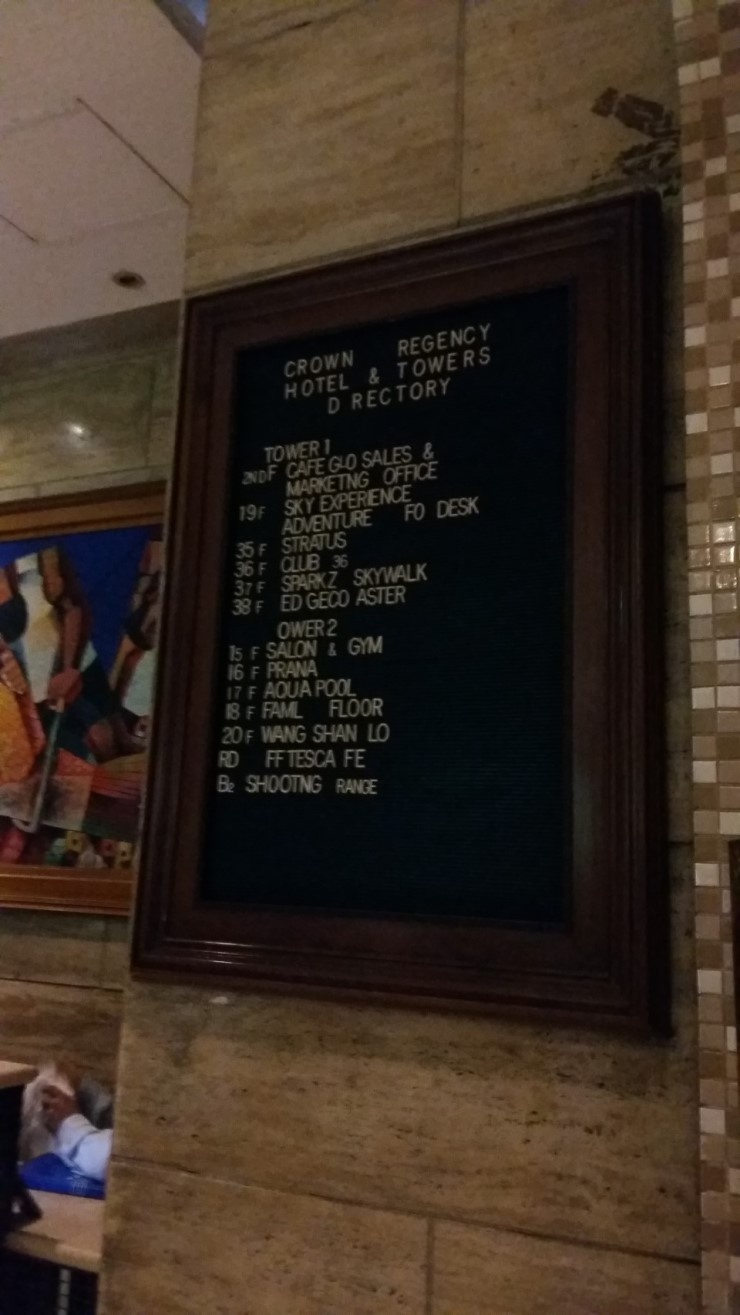 CROWN REGENCY
HOTEL & TOWERS
D RECTORY
TOWER 1
2ND F CAFE GLO SALES &
MARKETNG OFFICE
19 F SKY EXPERIENCE
ADVENTURE FO DESK
35 F STRATUS
36 F CLUB 36
37 F SPARKZ SKYWALK
38 F ED GECO ASTER
OWER 2
15 F SALON & GYM
16 F PRANA
17 F AQUA POOL
18 F FAMIL FLOOR
20 F WANG SHAN LO
RD FF TESCA FE
B2 SHOOTNG RANGE